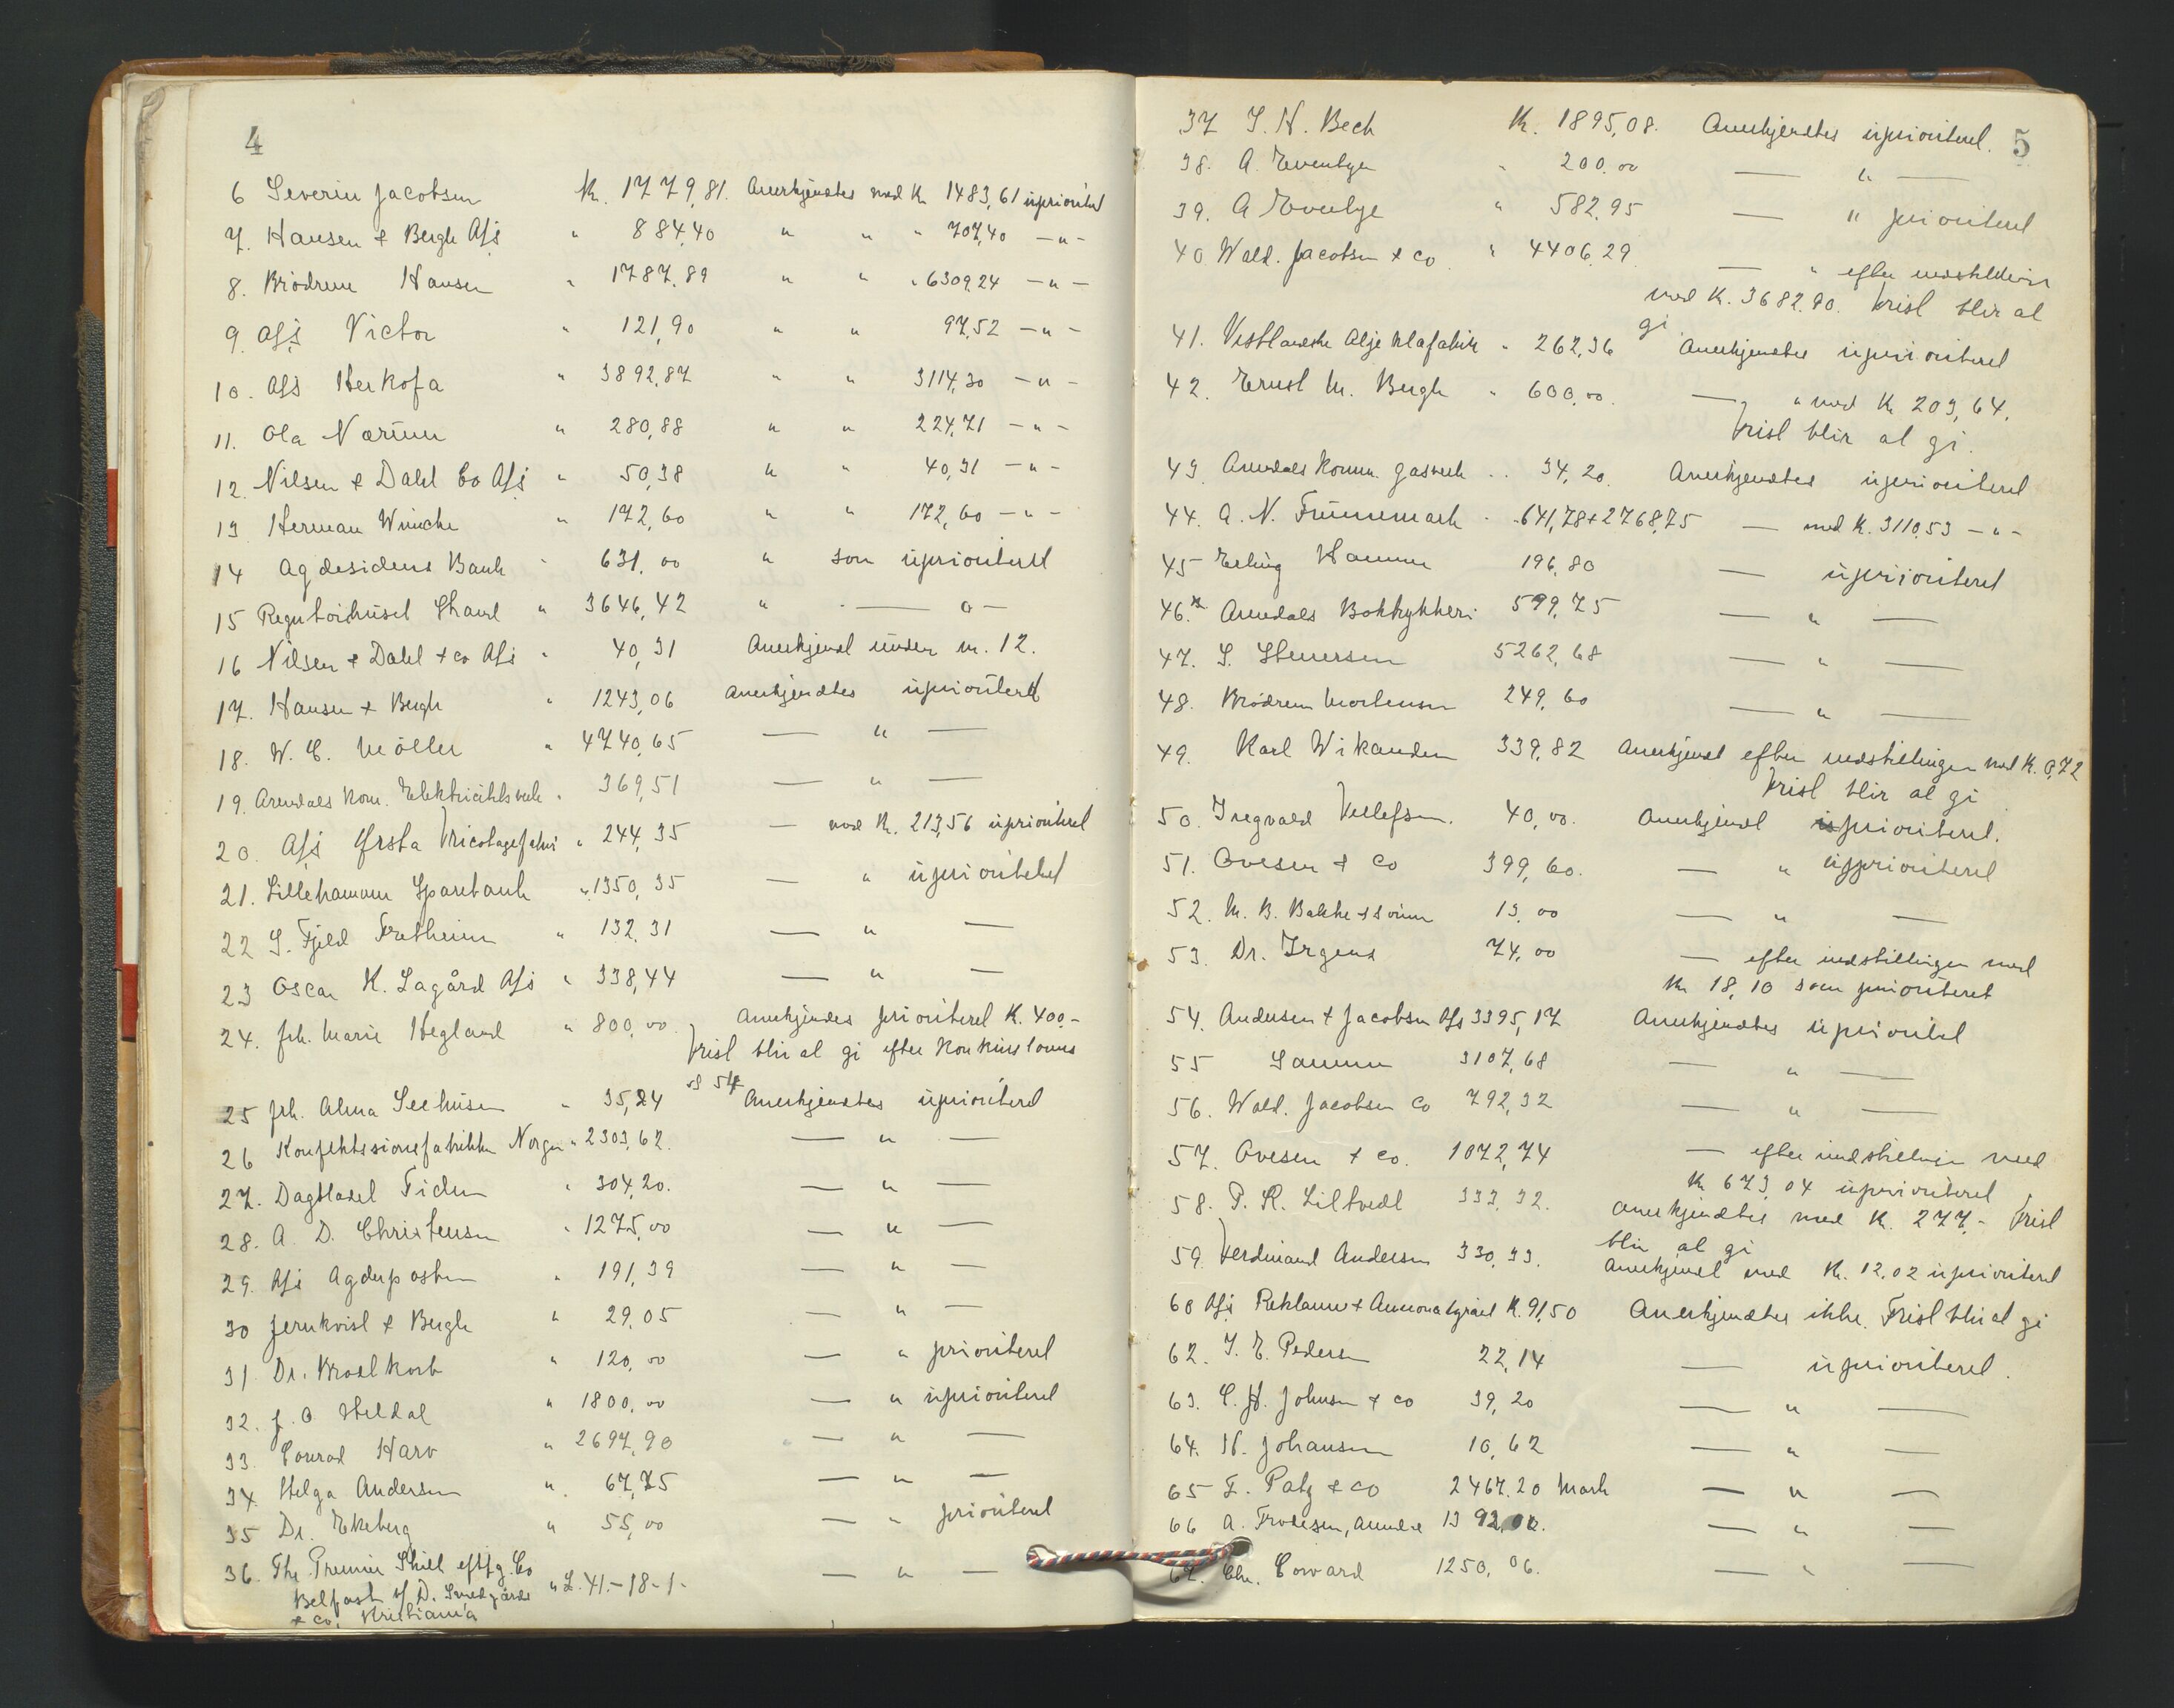 4
6 Severin Jacobsen Kr. 1779,81. Anerkjendtes med Kr 1483,61 üprioritert
7. Hansen & Bergh A/S " 884,40 " " " 707,40 — " —
8. Brödrene Hansen " 1787,89 " " " 6309,24 — " —
9. A/S Victor " 121,90 " " 97,52 — " —
10. A/S Herkofa " 3892,87 " " 3114,30 — " —
11. Ola Nörüm " 280,88 " " 224,71 — " —
12. Nilsen & Dahl Co A/S " 50,38 " " 40,31 — " —
13 Herman Wünche " 172,60 " " 172,60 — " —
14 Agdesidens Bank " 631,00 " som üprioritert
15 Regutorihüset Strand " 3646,42 " — " —
16 Nilsen & Dahl & Co A/S " 40,31 Anerkjendt ünder nr. 12.
17. Hansen & Bergh " 1243,06 Anerkjendtes üprioritert
18. W. C. Möller " 4740,65 — " —
19. Arendals kom. Elektricitetsverk " 369,51 — " —
20. A/S Ørsta Tricotagefabr " 244,35 — med Kr. 213,56 üprioriteret
21. Lillehammer Sparebank " 1350,35 — " üprioriteret
22 S. Fjeld Fretheim " 132,31 — " —
23 Oscar K. Lagård A/S " 338,44 — " —
24. frk. Marie Hegland " 800,00. Anerkjendes prioriteret K. 400,-
Frist blir at gi efter konkurslovens
§ 54
25 frk. Alma Seehusen " 35,24 Anerkjendtes üprioriteret
26 Konfektionsfabrikken Norge " 2303,62. — " —
27. Dagbladet Tiden " 304,20. — " —
28. A. D. Christensen " 1275,00 — " —
29. A/S Agderposten " 191,39 — " —
30 Jernkvist & Bergh " 29,05 — " —
31 Dr. Brodtkorb " 120,00 — " prioriteret
32. J. O. Heldal " 1800,00 — " üprioriteret
33. Conrad Harv " 2697,90 — " —
34. Helga Andersen " 67,75 — " —
35 Dr. Ekeberg " 55,00 — " prioriteret
36. The Premier Co
Belfast v/ D.
& Co, Kristiania " £. 41.-18-1- — " —
5
37 S. N. Bech Kr. 1895,08. Anerkjendtes üprioriteret.
38. A. Evenlye " 200.00 — " —
39. A Evenlye " 582,95 — " prioriteret
40 Wald. Jacobsen & Co. " 4406,29 — " efter indstillein
med K. 3682.90. Frist blir at
gi.
41. Vestlandske Oljeklæfabrik " 262,36 Anerkjendtes üprioriteret
42. Ernst M. Bergh " 600,00. — " med Kr 203,64.
Frist blir at gi.
43. Arendals Komm. gasverk .. 34,20. Anerkjendtes üprioriteret
44. A. N. Trümmark . 641,78+2768,75 — med K. 3110,53 — " —
45 Erling Hammer 196,80 — üprioriteret
46. Arendals Boktrykkeri 599,75 — " —
47. S. Stenersen 5262,68 — " —
48. Brödrene Mortensen 249,60 — " —
49. Karl Wikander 339,82 Anerkjendt efter indstillingen med K. 0,72
Frist blir at gi
50. Ingvald Vellefsen. 40,00. Anerkjendt prioriteret.
51. Ovesen & Co 399,60. — " üprioriteret
52. M. B. 13,00 — " —
53. Dr. Irgens 74,00 — efter indstillingen med
Kr 18,10 som prioriteret
54. Andersen & Jacobsen A/S 3395,17 Anerkjendtes üprioritet
55 Samme 3107,68 — " —
56. Wald. Jacobsen Co 792,32 — " —
57. Ovesen & Co. 1072,74 — efter indstillingen med
Kr 673,04 üprioriteret
58. P. R. Liltvedt 333,32. Anerkjendtes med K. 277,- Frist
blir at gi
59. Ferdinand Andersen 330,33. Anerkjendt med Kr. 12,02 üprioriteret
60 A/S Reklame & K. 91,50 Anerkjendtes ikke. Frist blir at gi
62. J. E. Pedersen 22,14 — üprioriteret.
63. C. H. Johnsen & Co 39,20 — " —
64. N. Johansen 10,62 — " —
65 F. Patz & Co 2467.20 Mark — " —
66 A. Frodesen, Arendal 1392,00. — " —
67. Chr. Coward 1250,06. — " —